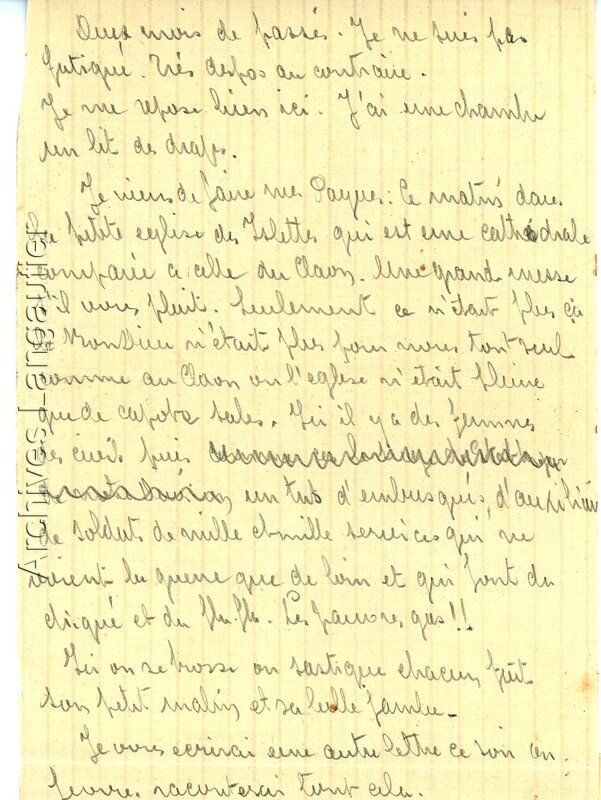 Deux mois de passés. Je ne suis pas
fatigué. Très dispos au contraire.
Je me repose bien ici. J'ai une chambre
un lit des draps.
Je viens de faire mes Paques: Ce matin dans
la petite eglise des Islettes qui est une cathédrale
comparée a celle du Claon. Une grand messe
s'il vous plait. Seulement ce n'était plus ça
le Bon Dieu n'était plus pour nous tout seul
comme au Claon ou l'eglise n'était pleine
que de capotes sales. Ici il y a des femmes
des civils puis
un tas d'embusqués, d'auxiliaires
de soldats de mille et mille services qui ne
voient la guerre que de loin et qui font du
chiqué et du fla-fla. Les pauvres gas!!
Ici on se brosse on sastique chacun fait
son petit malin et sa belle jambe.
Je vous ecrirai une autre lettre ce soir ou
vous raconterai tout cela.